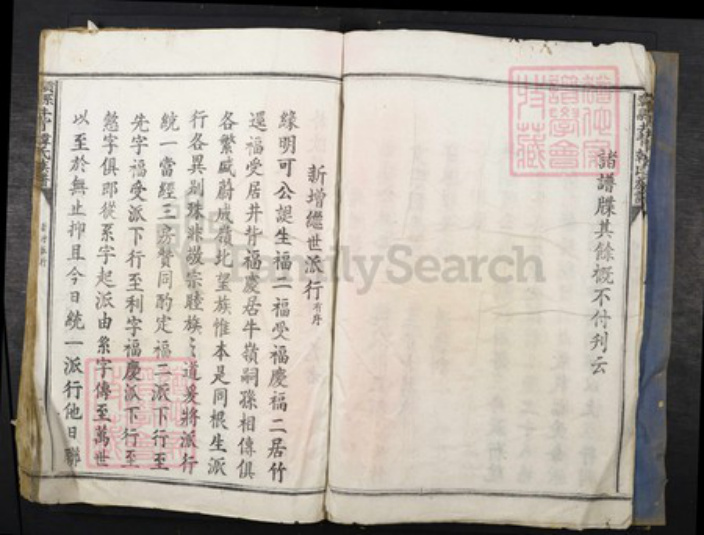 諸譜牒其餘概不付刊云
新增繼世派行有序
緣明可公諟生福二福受福慶福二居竹
逕福受居井背福慶居牛嶺嗣孫相傳俱
各繁盛蔚成嶺北望族惟本是同根生派
行各異剔殊非敬宗睦族之道爰將派行
統一當經三房贊同酌定福二派下行至
先字福受派下行至利字福慶派下行至
愆字俱卽從系字起派由系字傳至萬世
以至於無止抑且今日統一派行他日聯
FamilySearch